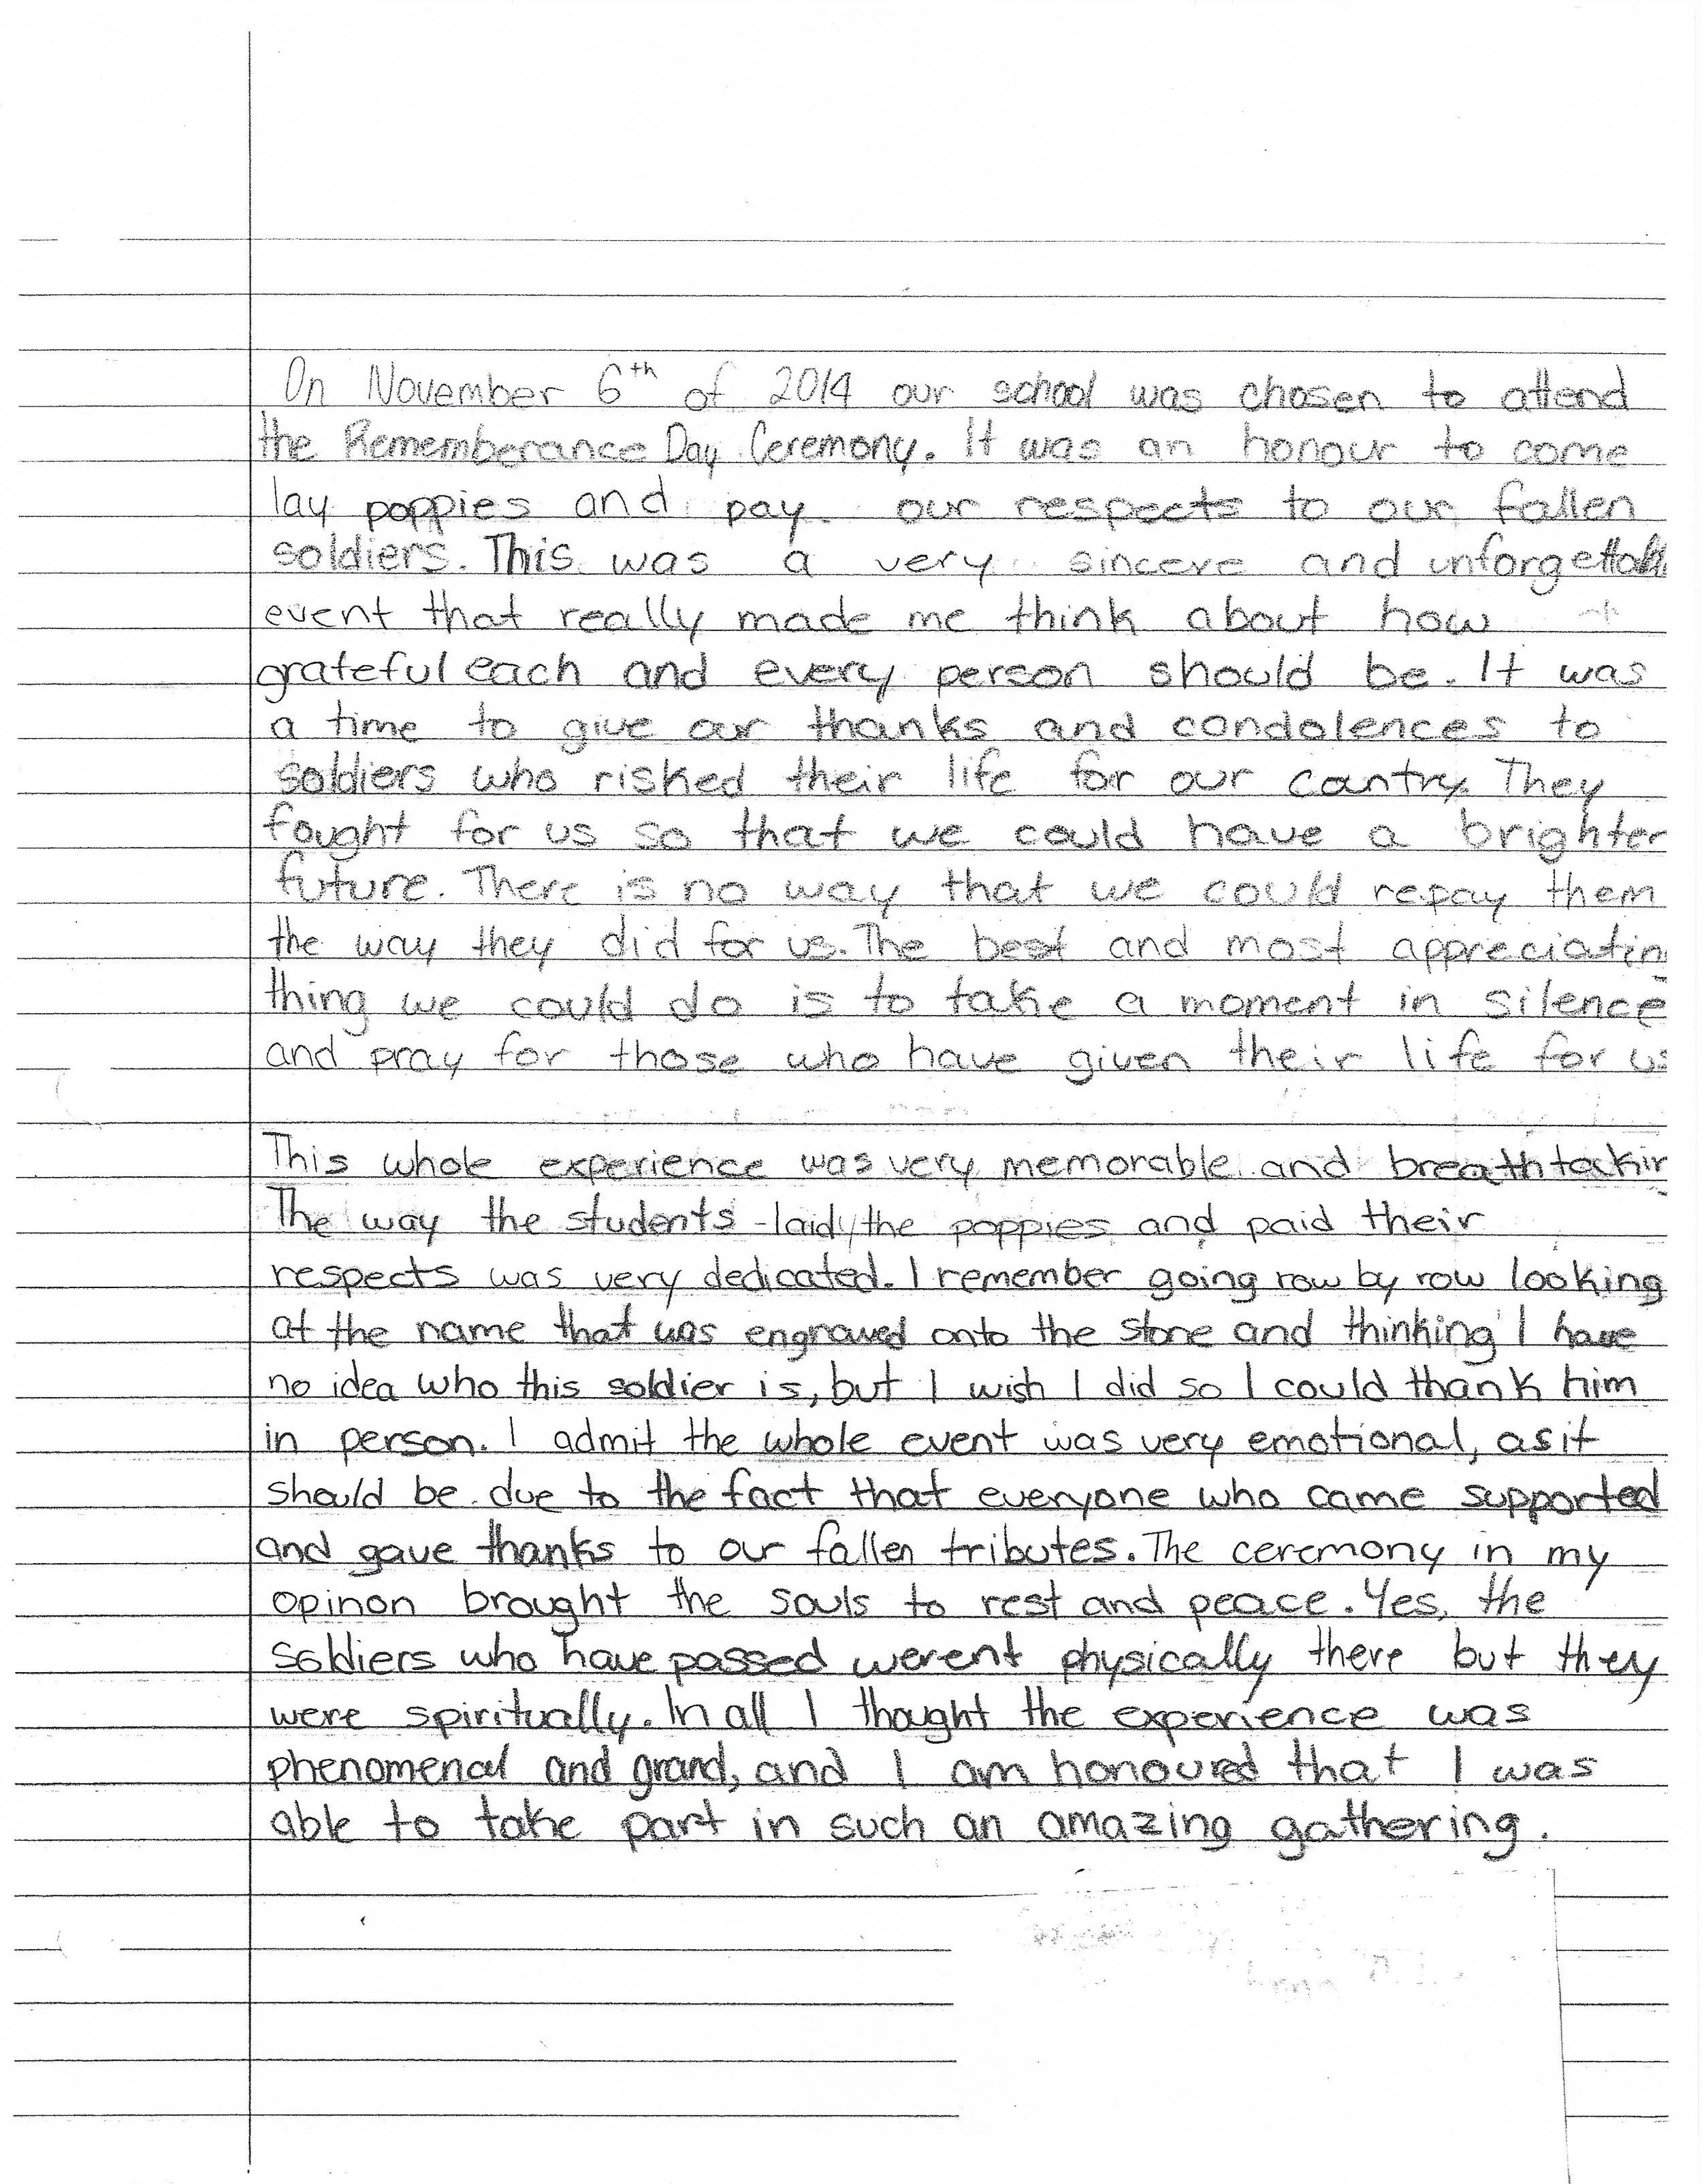 On November 6th of 2014 our school was chosen to attend
the Rememberance Day Ceremony. It was an honour to come
lay poppies and pay our respects to our fallen
soldiers. This was a very sincere and unforgettabl
event that really made me think about how
grateful each and every person should be. It was
a time to give our thanks and condolences to
soldiers who risked their life for our country. They
fought for us so that we could have a brighter
future. There is no way that we could repay them
the way they did for us. The best and most appreciatin
thing we could do is to take a moment in silence
and pray for those who have given their life for us
This whole experience was very memorable and breathtakin
The way the students laid the poppies and paid their
respects was very dedicated. I remember going row by row looking
at the name that was engraved onto the stone and thinking I have
no idea who this soldier is, but I wish I did so I could thank him
in person. I admit the whole event was very emotional, as it
should be due to the fact that everyone who came supported
and gave thanks to our fallen tributes. The ceremony in my
opinon brought the souls to rest and peace. Yes, the
soldiers who have passed werent physically there but they
were spiritually. In all I thought the experience was
phenomenal and grand, and I am honoured that I was
able to take part in such an amazing gathering.